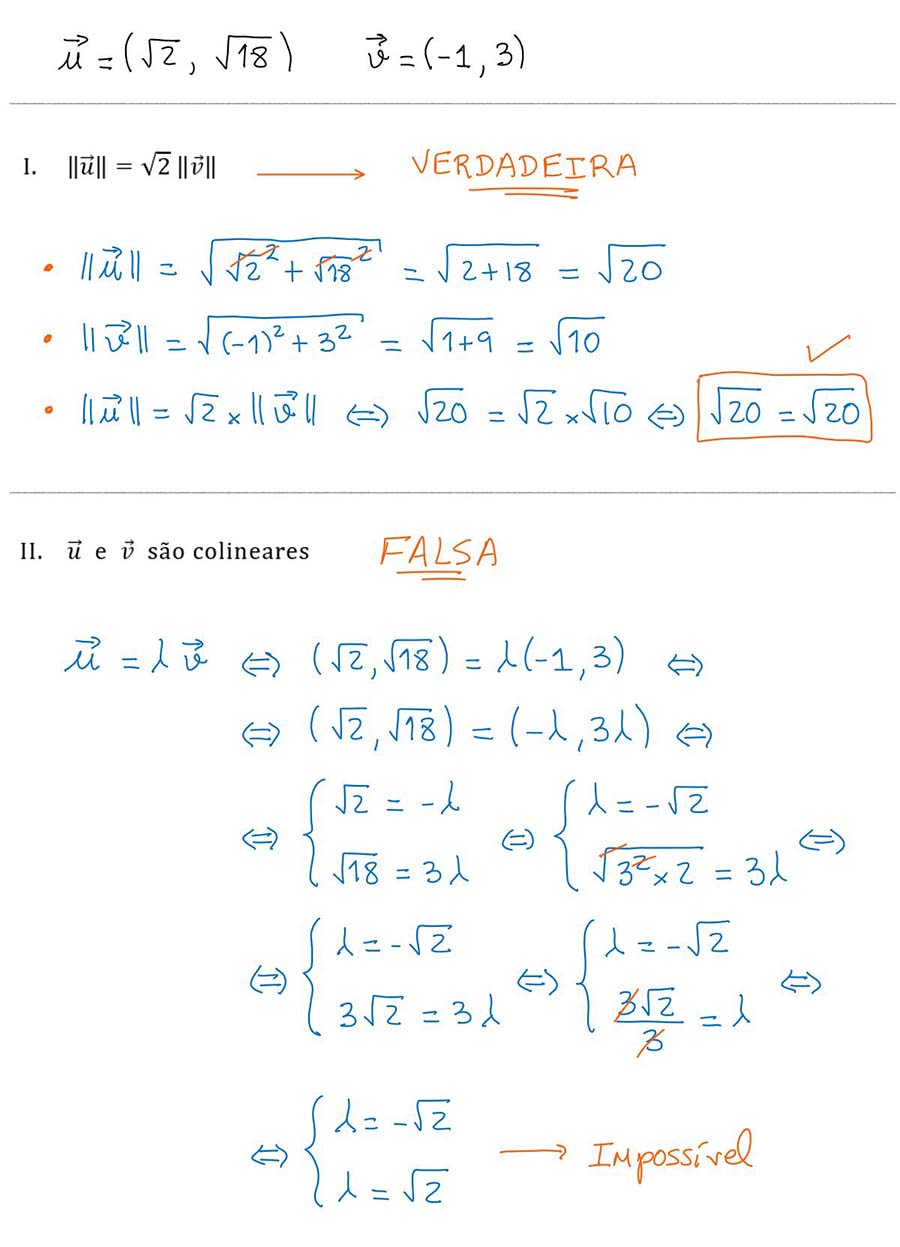 u⃗ = (√2, √18) v⃗ = (-1, 3)
I. ‖u⃗‖ = √2 ‖v⃗‖ ⟶ VERDADEIRA
• ‖u⃗‖ = √(√2² + √18²) = √(2+18) = √20
• ‖v⃗‖ = √((-1)² + 3²) = √(1+9) = √10
• ‖u⃗‖ = √2 × ‖v⃗‖ ⇔ √20 = √2 × √10 ⇔ √20 = √20 ✓
II. u⃗ e v⃗ são colineares FALSA
u⃗ = λ v⃗ ⇔ (√2, √18) = λ(-1, 3) ⇔
⇔ (√2, √18) = (-λ, 3λ) ⇔
⇔ { √2 = -λ ⇔ { λ = -√2
√18 = 3λ √(3²×2) = 3λ ⇔
⇔ { λ = -√2 ⇔ { λ = -√2 ⇔
3√2 = 3λ 3√2/3 = λ
⇔ { λ = -√2 ⟶ Impossível
λ = √2